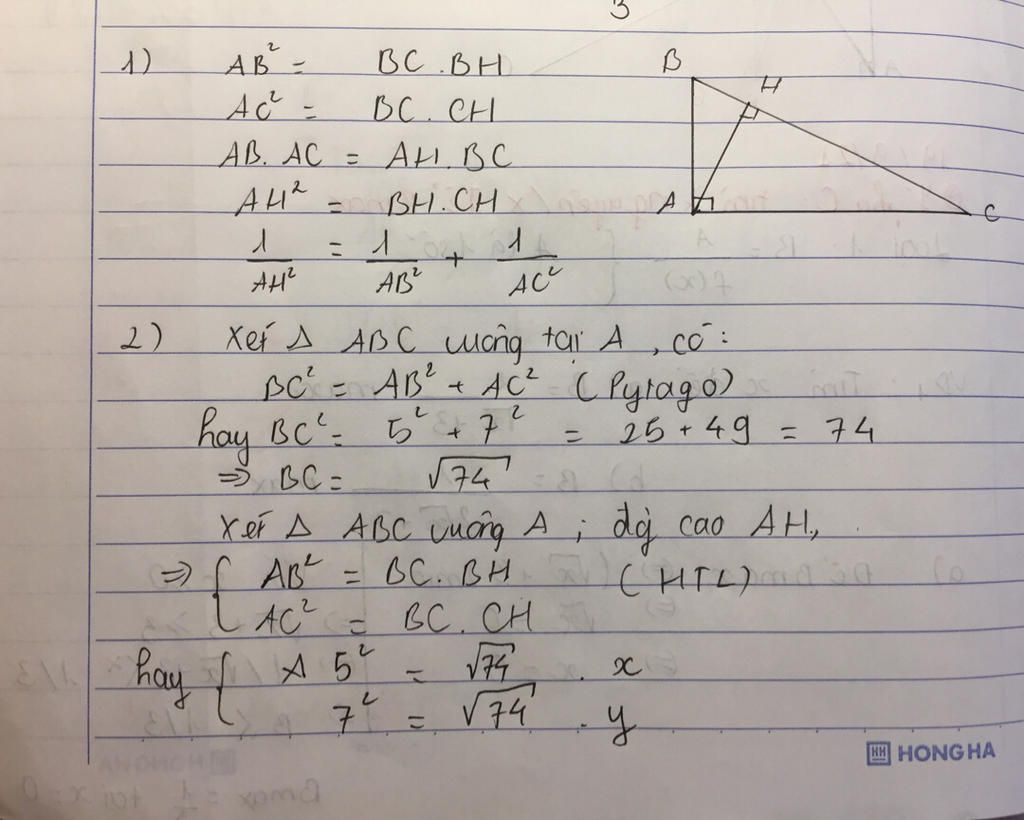 3
1) AB² = BC . BH
AC² = BC . CH
AB . AC = AH . BC
AH² = BH . CH
1/AH² = 1/AB² + 1/AC²
B
H
A
C
2) Xét Δ ABC vuông tại A , có :
BC² = AB² + AC² ( Pytago )
hay BC² = 5² + 7² = 25 + 49 = 74
⇒ BC = √74
Xét Δ ABC vuông A ; đg cao AH,
⇒ { AB² = BC . BH ( HTL )
AC² = BC . CH
hay { 5² = √74 . x
7² = √74 . y
HONG HA